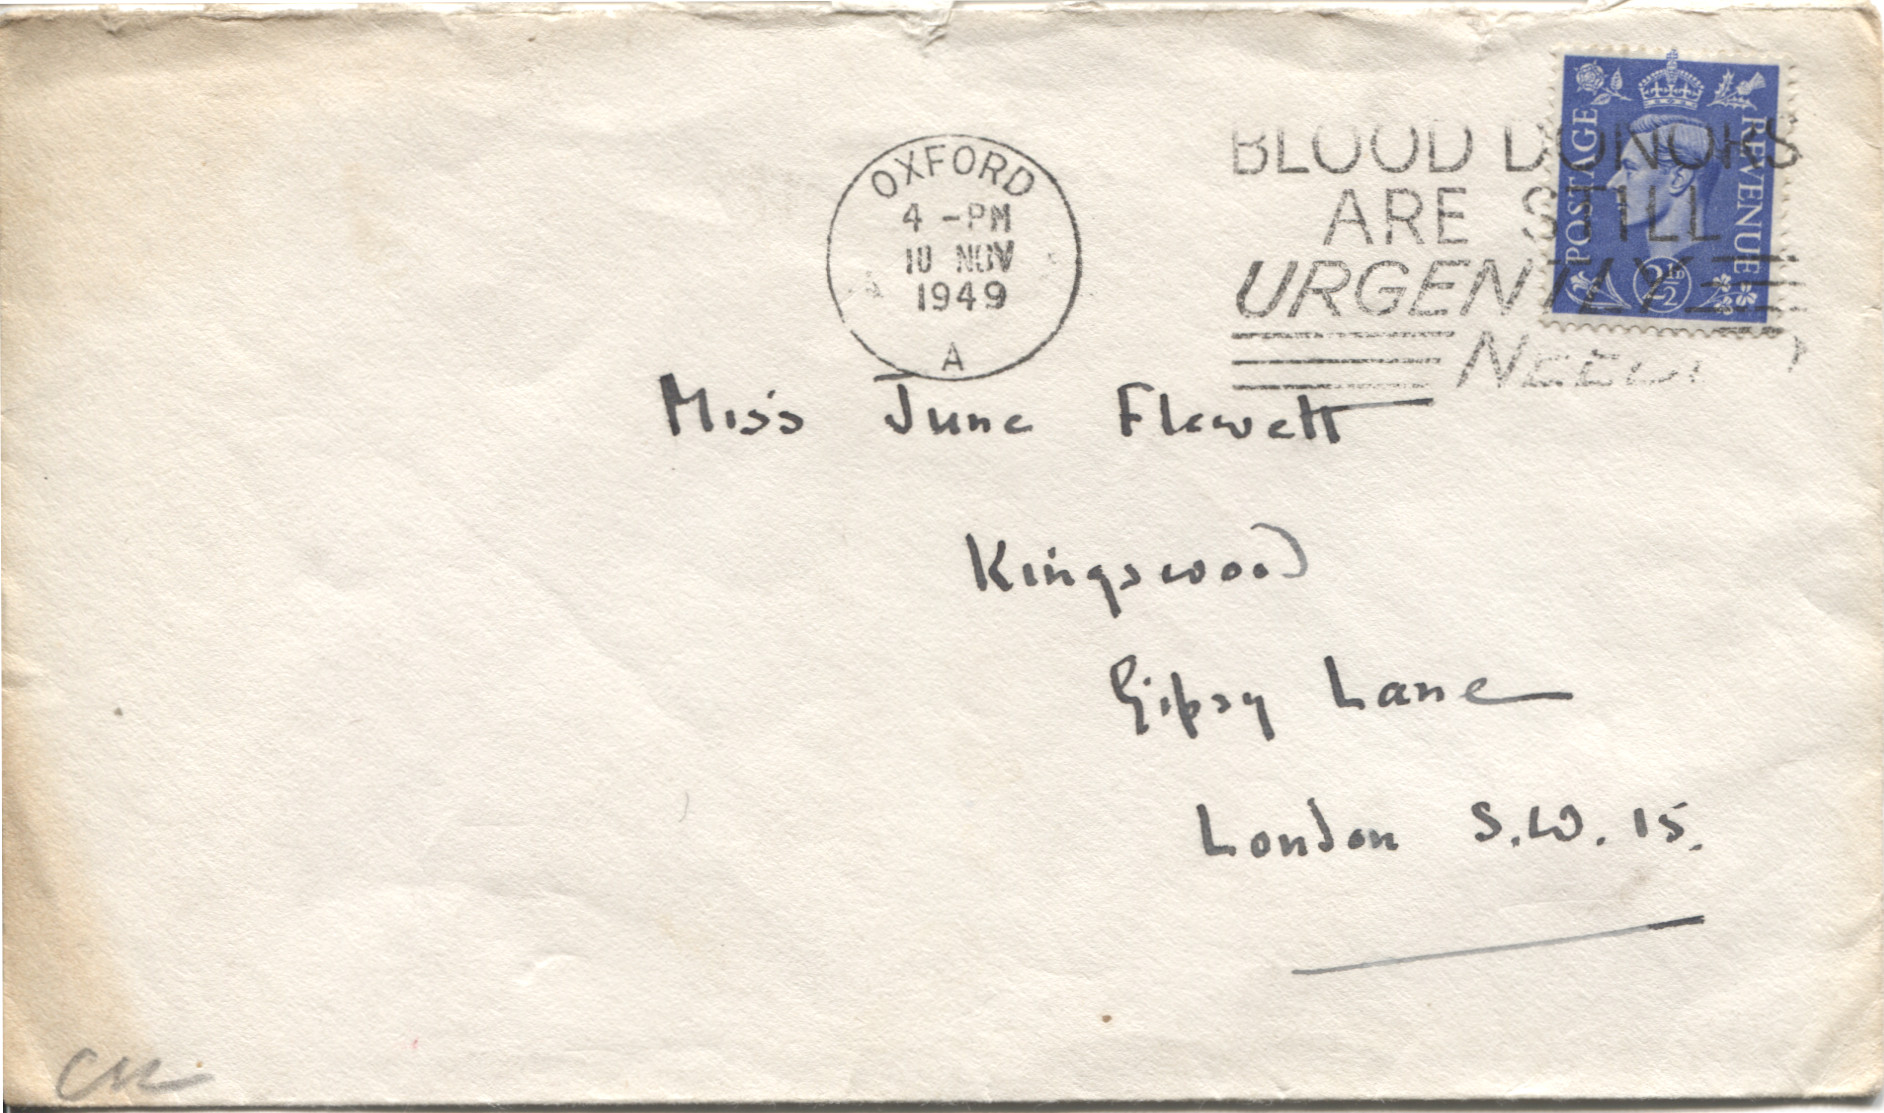 OXFORD
4 -PM
10 NOV
1949
A
BLOOD DONORS
ARE STILL
URGENTLY
NEEDED
POSTAGE
REVENUE
2½D
Miss June Flewett
Kingswood
Gipsy Lane
London S.W. 15.